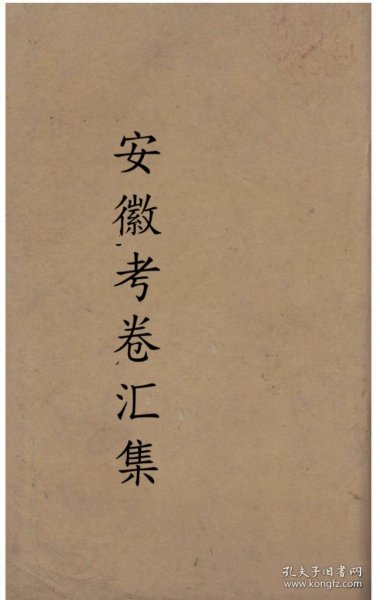 安徽考卷汇集
孔夫子旧书网
www.kongfz.com